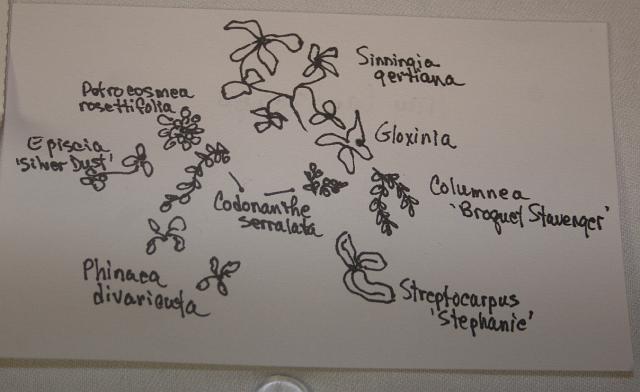 Sinningia
gertiana
Petrocosmea
rosettifolia
Gloxinia
Episcia
'Silver Dust'
Columnea
'Broquet Stavenger'
Codonanthe
serralata
Phinaea
divaricata
Streptocarpus
'Stephanie'